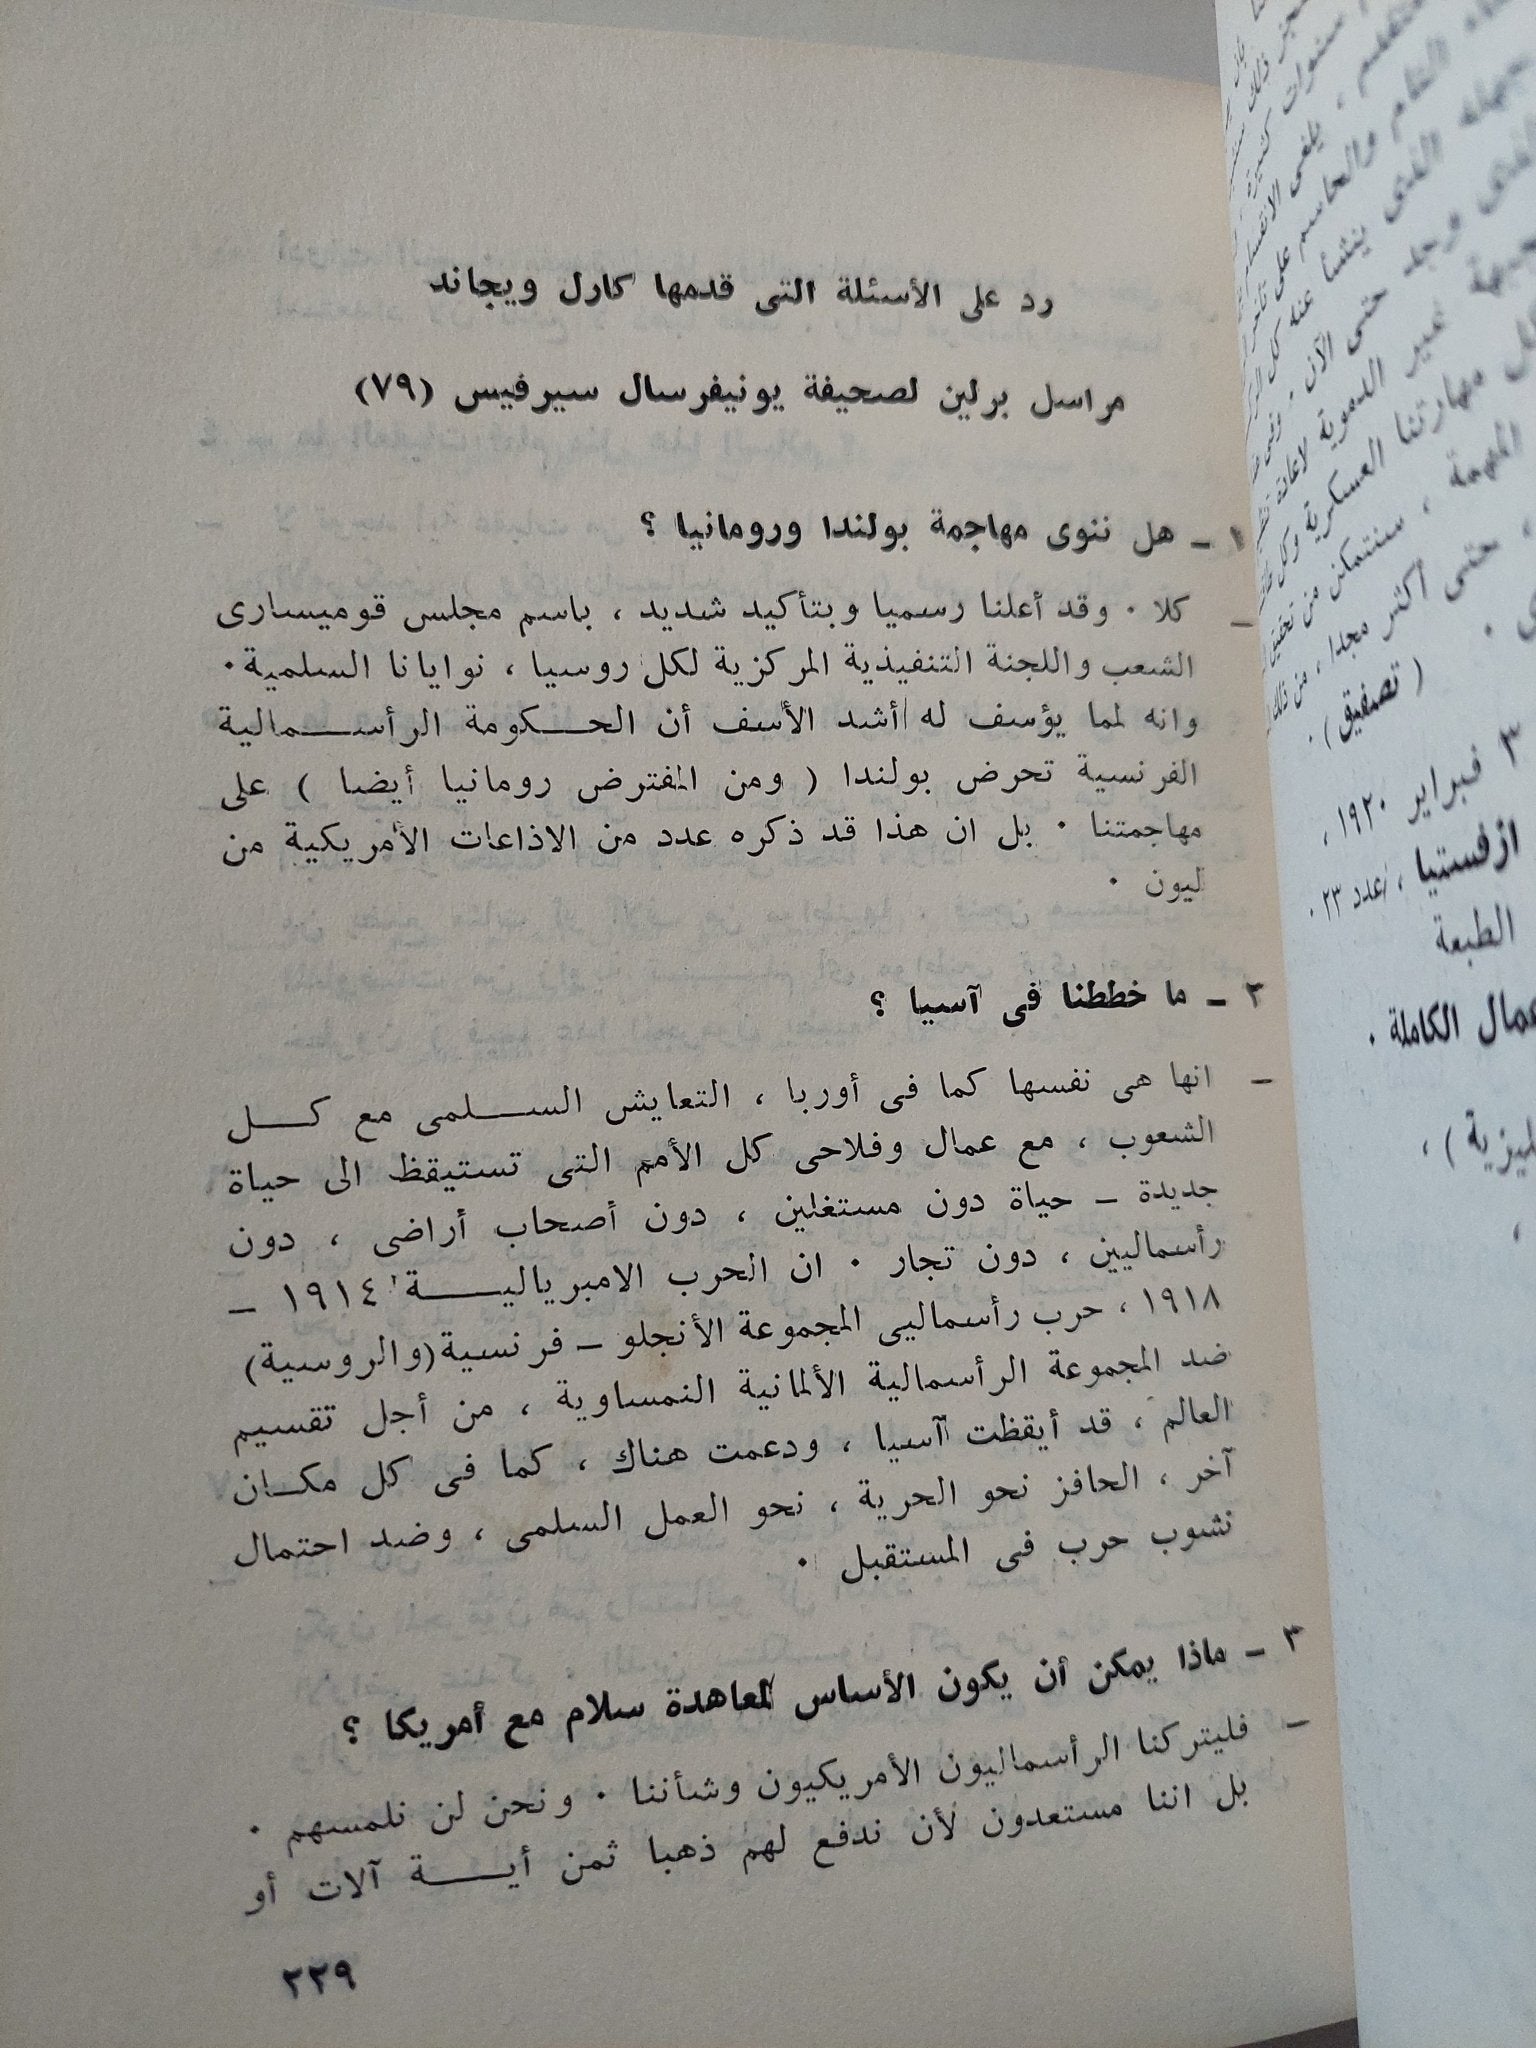 رد على الأسئلة التى قدمها كارل ويجاند
مراسل برلين لصحيفة يونيفرسال سيرفيس (٧٩)
١ - هل ننوى مهاجمة بولندا ورومانيا ؟
- كلا . وقد أعلنا رسميا وبتأكيد شديد ، باسم مجلس قوميسارى
الشعب واللجنة التنفيذية المركزية لكل روسيا ، نوايانا السلمية .
وانه لمما يؤسف له أشد الأسف أن الحكومة الرأسمالية
الفرنسية تحرض بولندا ( ومن المفترض رومانيا أيضا ) على
مهاجمتنا . بل ان هذا قد ذكره عدد من الاذاعات الأمريكية من
ليون .
٢ - ما خططنا فى آسيا ؟
- انها هى نفسها كما فى أوربا ، التعايش السلمى مع كل
الشعوب ، مع عمال وفلاحى كل الأمم التى تستيقظ الى حياة
جديدة - حياة دون مستغلين ، دون أصحاب أراضى ، دون
رأسماليين ، دون تجار . ان الحرب الامبريالية ١٩١٤ -
١٩١٨ ، حرب رأسماليى المجموعة الأنجلو - فرنسية (والروسية)
ضد المجموعة الرأسمالية الألمانية النمساوية ، من أجل تقسيم
العالم ، قد أيقظت آسيا ، ودعمت هناك ، كما فى كل مكان
آخر ، الحافز نحو الحرية ، نحو العمل السلمى ، وضد احتمال
نشوب حرب فى المستقبل .
٣ - ماذا يمكن أن يكون الأساس لمعاهدة سلام مع أمريكا ؟
- فليتركنا الرأسماليون الأمريكيون وشأننا . ونحن لن نلمسهم .
بل اننا مستعدون لأن ندفع لهم ذهبا ثمن أية آلات أو
٢٢٩
سنوات كثيرة
حتى الآن .
مهارتنا العسكرية وكل
المهمة ، سنتمكن من تحقيق
، حتى أكثر مجدا ، من ذلك
( تصفيق ) .
٣ فبراير ١٩٢٠ ،
ازفستيا ، عدد ٢٣ .
الطبعة
الكاملة .